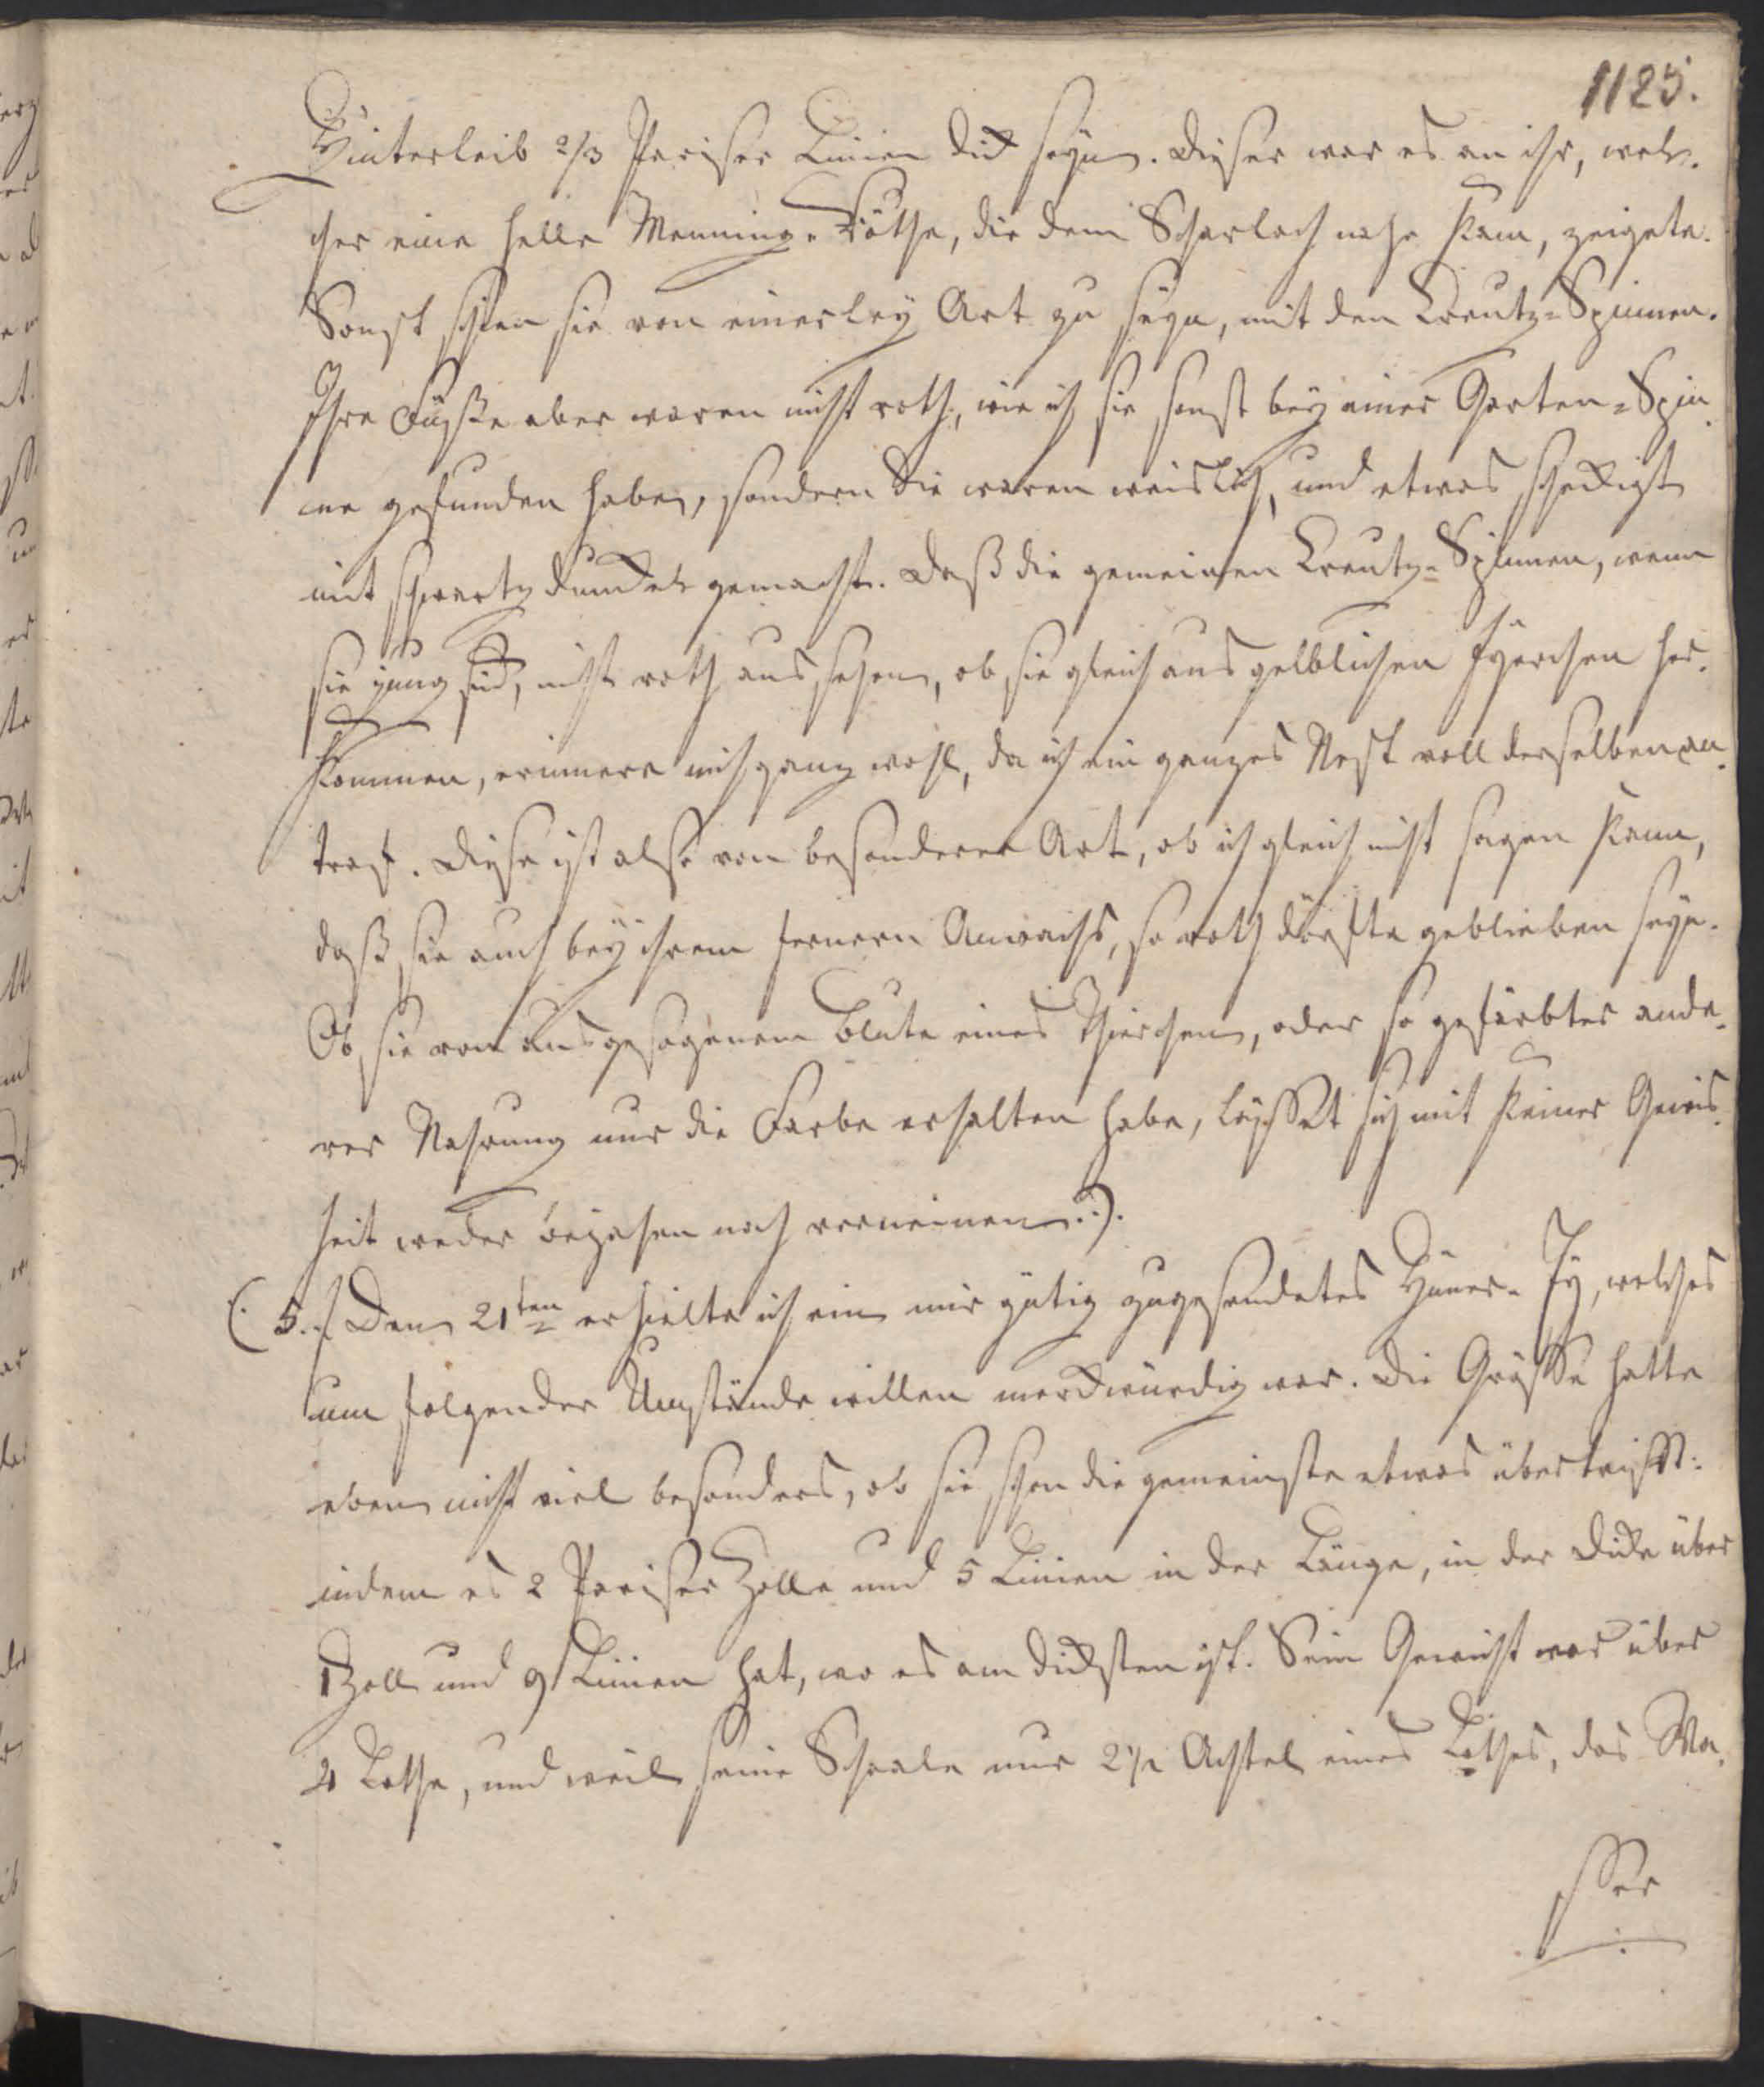 1125.
Hinterleib 2/3 Pariser Linien dick seyn. Dieser war es an ihr, wel-
cher eine helle Menning-Röthe, die dem Scharlach nahe kam, zeigete.
Sonst schien sie von einerley Art zu seyn, mit den Creutz-Spinnen.
Ihre Füsse aber waren nicht roth, wie ich sie sonst bey einer Garten-Spin-
ne gefunden habe, sondern die waren weislich, und etwas scheckigt
mit schwartz dunckel gemacht. Daß die gemeinen Creutz-Spinnen, wenn
sie jung sind, nicht roth aussehen, ob sie gleich aus gelblichen Eyerchen her-
kommen, erinnere mich ganz wohl, da ich ein ganzes Nest voll derselben an-
traf. Diese ist also von besonderer Art, ob ich gleich nicht sagen kann,
daß sie auch bey ihrem fernern Anwachs, so roth dörfte geblieben seyn.
Ob sie von ausgesogenem Blute eines Thierchen, oder so gefärbter ande-
rer Nahrung nur die Farbe erhalten habe, lässet sich mit keiner Gewis-
heit weder bejahen noch verneinen.:).
(: 5. Den 21ten erhielte ich ein mir gütig zugesendetes Hüner-Ey, welches
um folgender Umstände willen merckwürdig war. Die Grösse hatte
eben nicht viel besonders, ob sie schon die gemeinste etwas übertrifft:
indem es 2 Pariser Zolle und 5 Linien in der Länge, in der Dicke über
1 Zoll und 9 Linien hat, wo es am dicksten ist. Sein Gewicht war über
4 Lothe, und weil seine Schaale nur 2 1/2 Achtel eines Lothes, das Wa-
sser